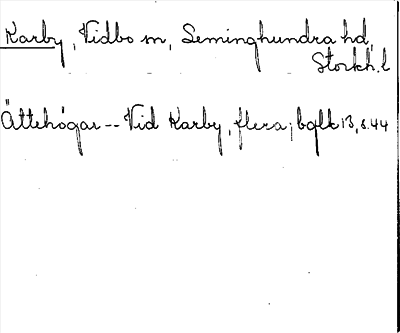 Karby, Vidbo sn, Seminghundra hd,
Stockh. l
Ättehögar -- Vid Karby, flera; bqfk 13, s. 44